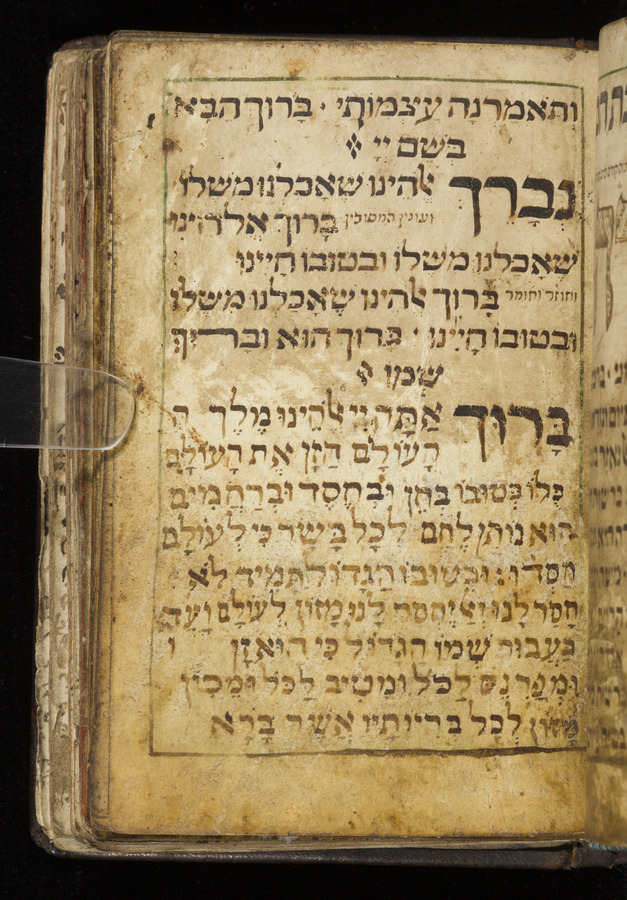 ותאמרנה עצמותי · ברוך הבא
בשם יי
נברך אלהינו שאכלנו משלו
ועונין המסובין ברוך אלהינו
שאכלנו משלו ובטובו חיינו
וחוזר ואומר ברוך אלהינו שאכלנו משלו
ובטובו חיינו · ברוך הוא וברוך
שמו
ברוך אתה יי אלהינו מלך ה
העולם הזן את העולם
כלו בטובו בחן ובחסד וברחמים
הוא נותן לחם לכל בשר כי לעולם
חסדו: ובטובו הגדול תמיד לא
חסר לנו ואל יחסר לנו מזון לעולם ועד
בעבור שמו הגדול כי הוא זן ו
ומפרנס לכל ומטיב לכל ומכין
מזון לכל בריותיו אשר ברא